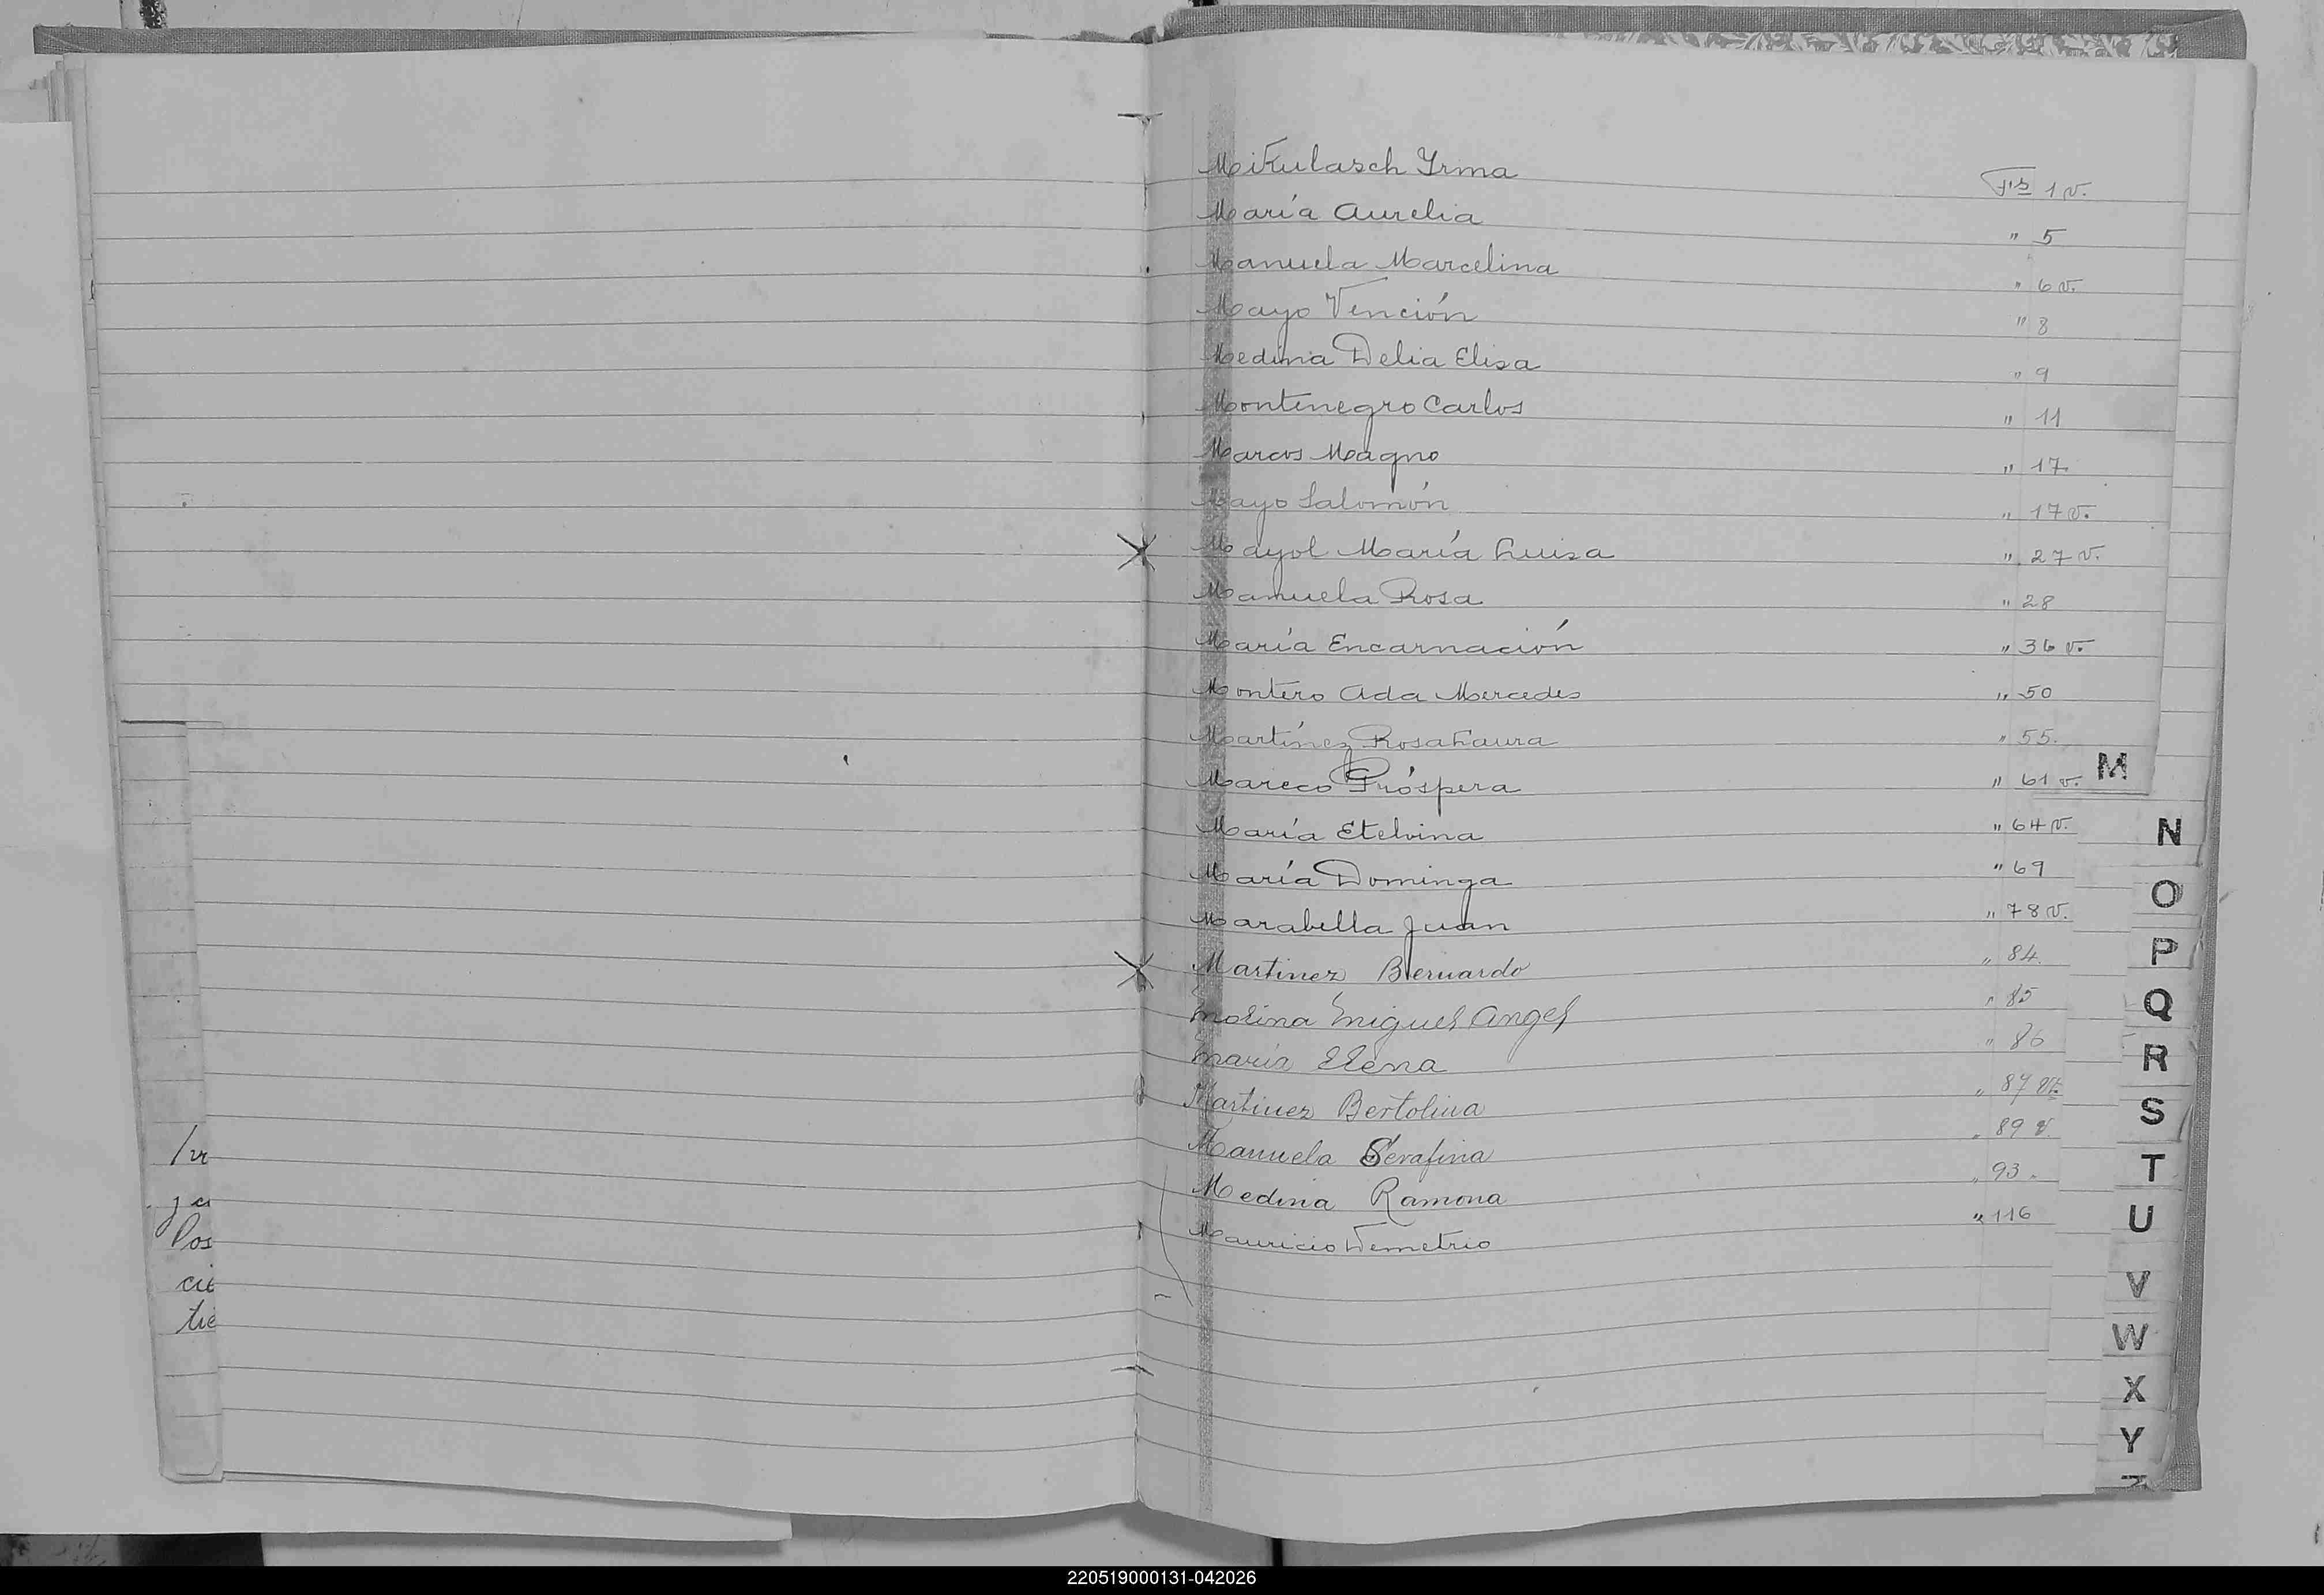 Mikulasch Yrma Fs 1 v.
María Aurelia " 5
Manuela Marcelina " 6 v.
Mayo Vención " 8
Medina Delia Elisa " 9
Montenegro Carlos " 11
Marcos Magno " 17
Mayo Salomón " 17 v.
Mayol María Luisa " 27 v.
Manuela Rosa " 28
María Encarnación " 36 v.
Montero Ada Mercedes " 50
Martínez Rosa Laura " 55.
Mareco Próspera " 61 v.
María Etelvina " 64 v.
María Dominga " 69
Marabella Juan " 78 v.
Martinez Bernardo " 84.
Molina Miguel Angel " 85
María Elena " 86
Martinez Bertolina " 87 vt.
Manuela Serafina " 89 v.
Medina Ramona " 93.
Mauricio Demetrio " 116
M
N
O
P
Q
R
S
T
U
V
W
X
Y
Pos
cie
tie
220519000131-042026